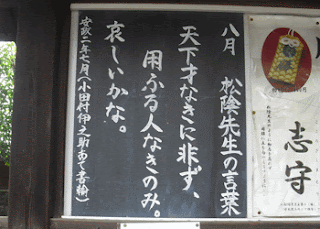 八月　松陰先生の言葉
天下才なきに非ず、
用ふる人なきのみ。
哀しいかな。
安政二年七月（小田村伊之助あて書翰）
志守